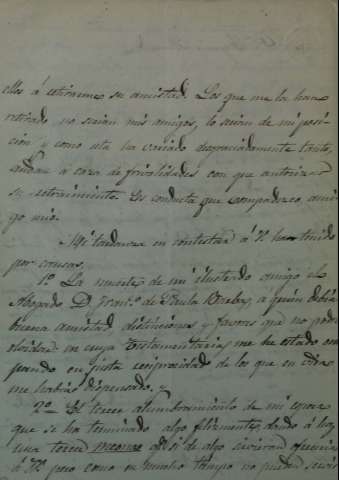 ellos á retirarme su amistad. Los que me la han
retirado no serian mis amigos, lo serian de mi posi-
cion y como esta ha variado desgraciadamente tanto,
andan a caza de frivolidades con que autorizar
su retraimiento. Es conducta que compadezco, ami-
go mio.
Mi tardanza en contestar á V. ha tenido
por causas,
1º La muerte de mi ilustrado amigo el
Abogado D. Franc.º de Paula á quien debia
buena amistad distinciones y favores que no podré
olvidar en cuya testamentaria me he estado ocu-
pando en justa reciprocidad de los que en vida
me habia dispensado, y
2º El tercer alumbramiento de mi esposa
que se ha terminado algo felizmente, dando á luz
una tercera que si de algo sirvieran ofreceria
á V. pero como en mucho tiempo no pueden servir